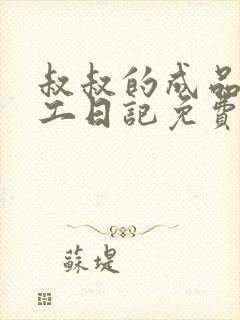 叔叔的成品
工日記免費
蘇堤